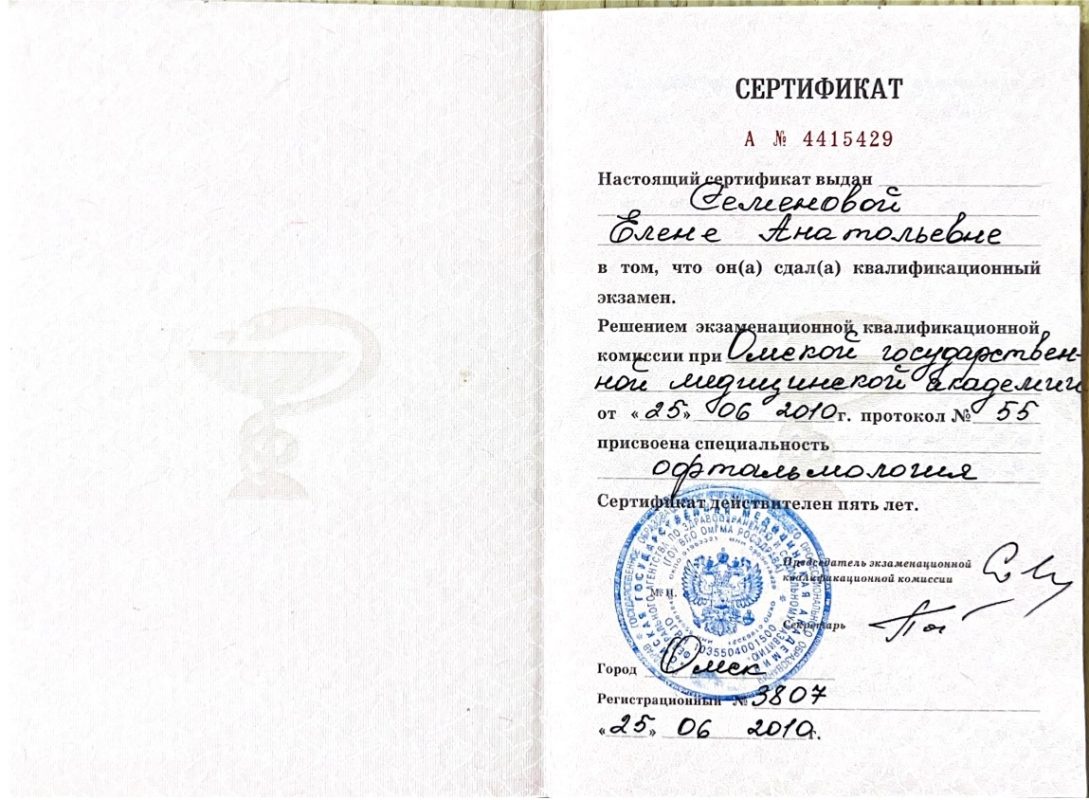 СЕРТИФИКАТ
А № 4415429
Настоящий сертификат выдан
Семеновой
Елене Анатольевне
в том, что он(а) сдал(а) квалификационный
экзамен.
Решением экзаменационной квалификационной
комиссии при Омской государствен-
ной медицинской академии
от «25» 06 2010г. протокол № 55
присвоена специальность
офтальмология
Сертификат действителен пять лет.
Председатель экзаменационной
квалификационной комиссии
М. П.
Секретарь
ОГРН 1035504001500
Город Омск
Регистрационный № 3807
«25» 06 2010г.